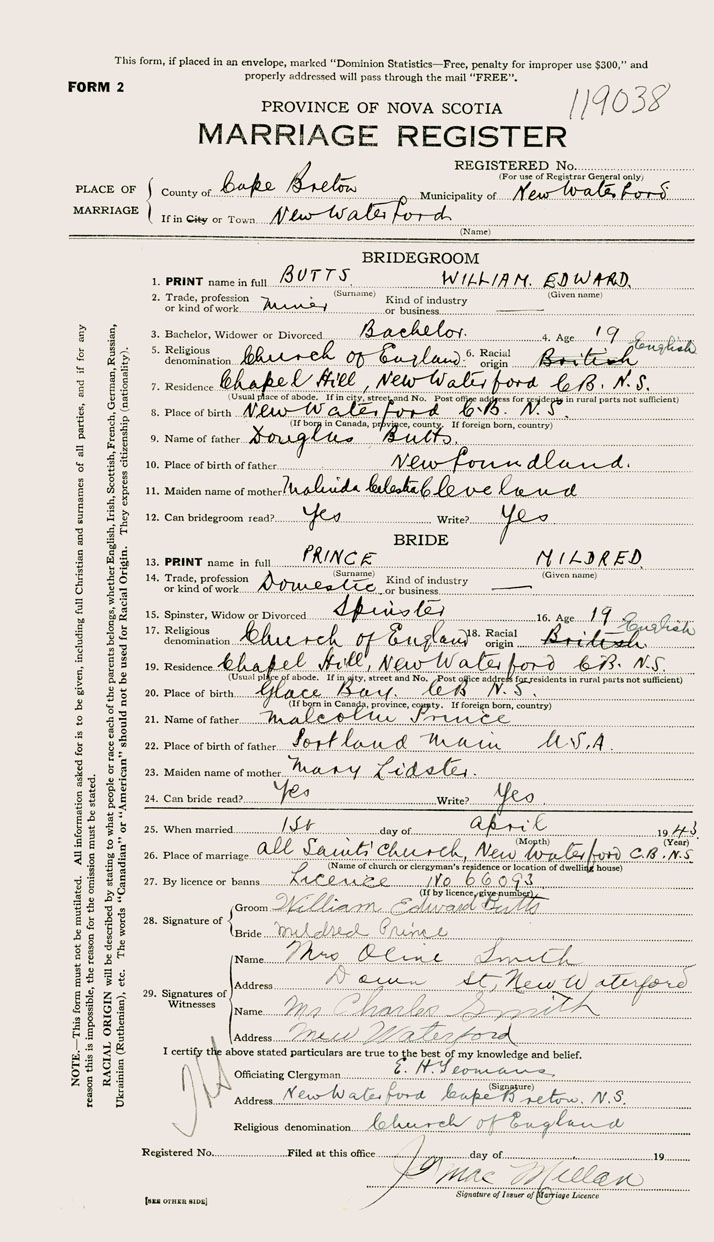 This form, if placed in an envelope, marked "Dominion Statistics—Free, penalty for improper use $300," and
properly addressed will pass through the mail "FREE".
FORM 2
119038
PROVINCE OF NOVA SCOTIA
MARRIAGE REGISTER
REGISTERED No.
(For use of Registrar General only)
PLACE OF MARRIAGE
County of Cape Breton Municipality of New Waterford
If in City or Town New Waterford
(Name)
BRIDEGROOM
1. PRINT name in full BUTTS WILLIAM. EDWARD.
(Surname) (Given name)
2. Trade, profession or kind of work miner Kind of industry or business
3. Bachelor, Widower or Divorced Bachelor. 4. Age 19
5. Religious denomination Church of England 6. Racial origin British English
7. Residence Chapel Hill, New Waterford C.B. N.S.
(Usual place of abode. If in city, street and No. Post office address for residents in rural parts not sufficient)
8. Place of birth New Waterford C.B. N.S.
(If born in Canada, province, county. If foreign born, country)
9. Name of father Douglas Butts.
10. Place of birth of father Newfoundland.
11. Maiden name of mother Malinda Celestia Cleveland
12. Can bridegroom read? Yes Write? Yes
BRIDE
13. PRINT name in full PRINCE MILDRED.
(Surname) (Given name)
14. Trade, profession or kind of work Domestic Kind of industry or business
15. Spinster, Widow or Divorced Spinster 16. Age 19
17. Religious denomination Church of England 18. Racial origin British English
19. Residence Chapel Hill, New Waterford C.B. N.S.
(Usual place of abode. If in city, street and No. Post office address for residents in rural parts not sufficient)
20. Place of birth Glace Bay. C.B N.S.
(If born in Canada, province, county. If foreign born, country)
21. Name of father Malcolm Prince
22. Place of birth of father Portland Main U.S.A.
23. Maiden name of mother Mary Lidster.
24. Can bride read? Yes Write? Yes.
25. When married 1st day of April 1943
(Month) (Year)
26. Place of marriage All Saints Church, New Waterford C.B. N.S
(Name of church or clergyman's residence or location of dwelling house)
27. By licence or banns Licence No 66093
(If by licence, give number)
28. Signature of
Groom William Edward Butts
Bride Mildred Prince
29. Signatures of Witnesses
Name Mrs Olive Smith
Address St, New Waterford
Name Mr Charles Smith
Address New Waterford
I certify the above stated particulars are true to the best of my knowledge and belief.
Officiating Clergyman E. H. Yeomans
(Signature)
Address New Waterford Cape Breton. N.S.
Religious denomination Church of England
Registered No. Filed at this office day of 19
MacMillan
Signature of Issuer of Marriage Licence
[SEE OTHER SIDE]
NOTE.—This form must not be mutilated. All information asked for is to be given, including full Christian and surnames of all parties, and if for any
reason this is impossible, the reason for the omission must be stated.
RACIAL ORIGIN will be described by stating to what people or race each of the parents belongs, whether English, Irish, Scottish, French, German, Russian,
Ukrainian (Ruthenian), etc. The words "Canadian" or "American" should not be used for Racial Origin. They express citizenship (nationality).